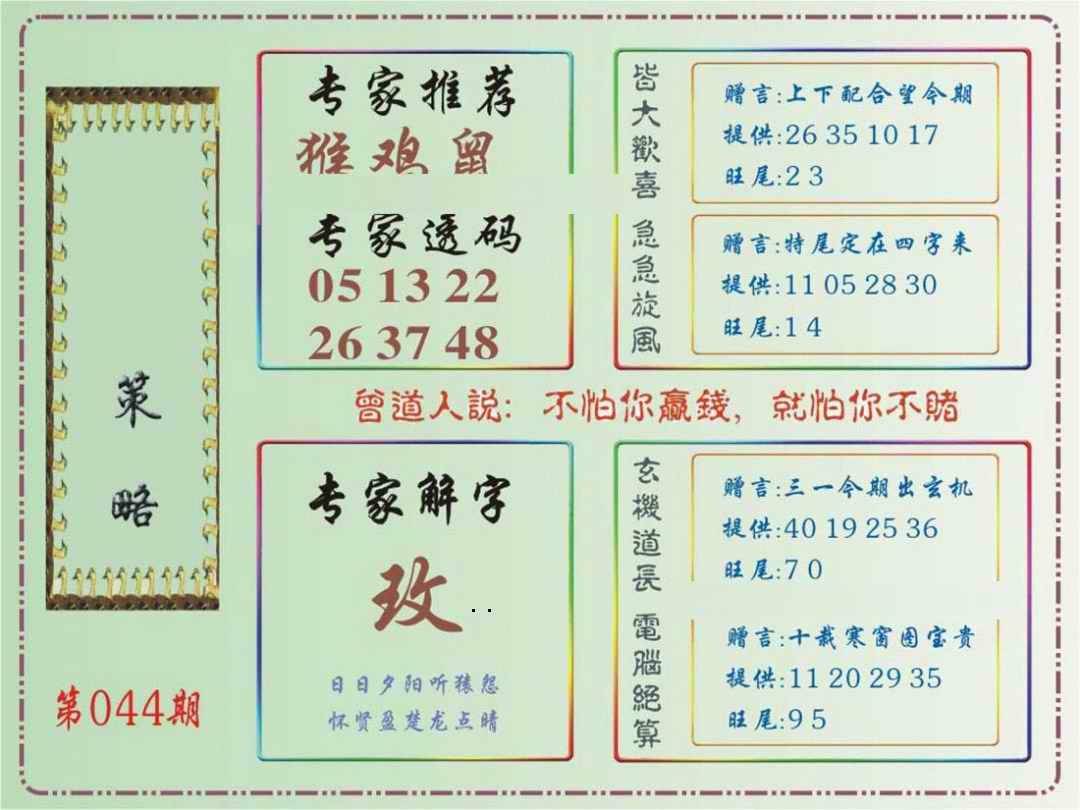 策略
第044期
专家推荐
猴鸡鼠
专家透码
05 13 22
26 37 48
皆大歡喜
赠言:上下配合望今期
提供:26 35 10 17
旺尾:2 3
急急旋風
赠言:特尾定在四字来
提供:11 05 28 30
旺尾:1 4
曾道人説: 不怕你贏錢, 就怕你不賭
专家解字
玫
..
日日夕阳听猿怨
怀贤盈楚龙点晴
玄機道長
赠言:三一今期出玄机
提供:40 19 25 36
旺尾:7 0
電腦絕算
赠言:十载寒窗图宝贵
提供:11 20 29 35
旺尾:9 5